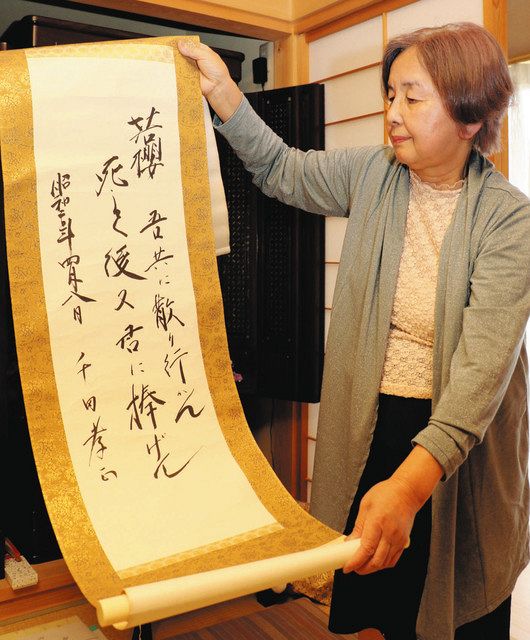 若櫻 吾共に散り行かん
死して後又君に捧げん
昭和二十年四月八日 千田孝正